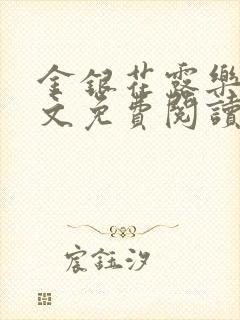 金銀花露樂
文免費閱讀
宸鈺汐